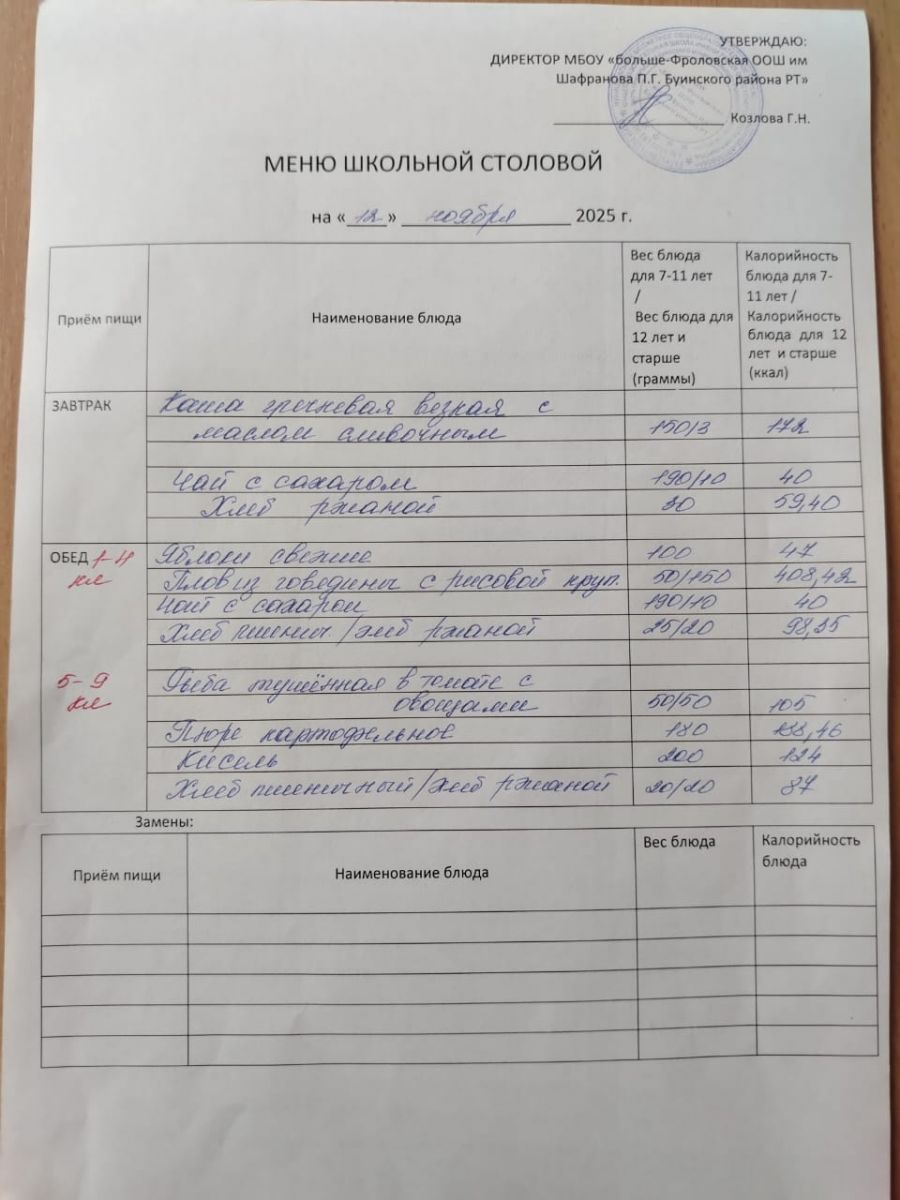 УТВЕРЖДАЮ:
ДИРЕКТОР МБОУ «больше-Фроловская ООШ им
Шафранова П.Г. Буинского района РТ»
Козлова Г.Н.
МЕНЮ ШКОЛЬНОЙ СТОЛОВОЙ
на « 12 » ноября 2025 г.
Приём пищи Наименование блюда Вес блюда для 7-11 лет / Вес блюда для 12 лет и старше (граммы) Калорийность блюда для 7-11 лет / Калорийность блюда для 12 лет и старше (ккал)
ЗАВТРАК Каша гречневая вязкая с
маслом сливочным 150/3 172
Чай с сахаром 190/10 40
Хлеб ржаной 30 59,40
ОБЕД 1-4 Яблоки свежие 100 47
кл Плов из говядины с рисовой круп. 50/150 408,42
Чай с сахаром 190/10 40
Хлеб пшенич. /хлеб ржаной 25/20 98,35
5-9 Рыба тушённая в томате с
кл овощами 50/50 105
Пюре картофельное 180
Кисель 200 124
Хлеб пшеничный/хлеб ржаной 20/20 87
Замены:
Приём пищи Наименование блюда Вес блюда Калорийность блюда